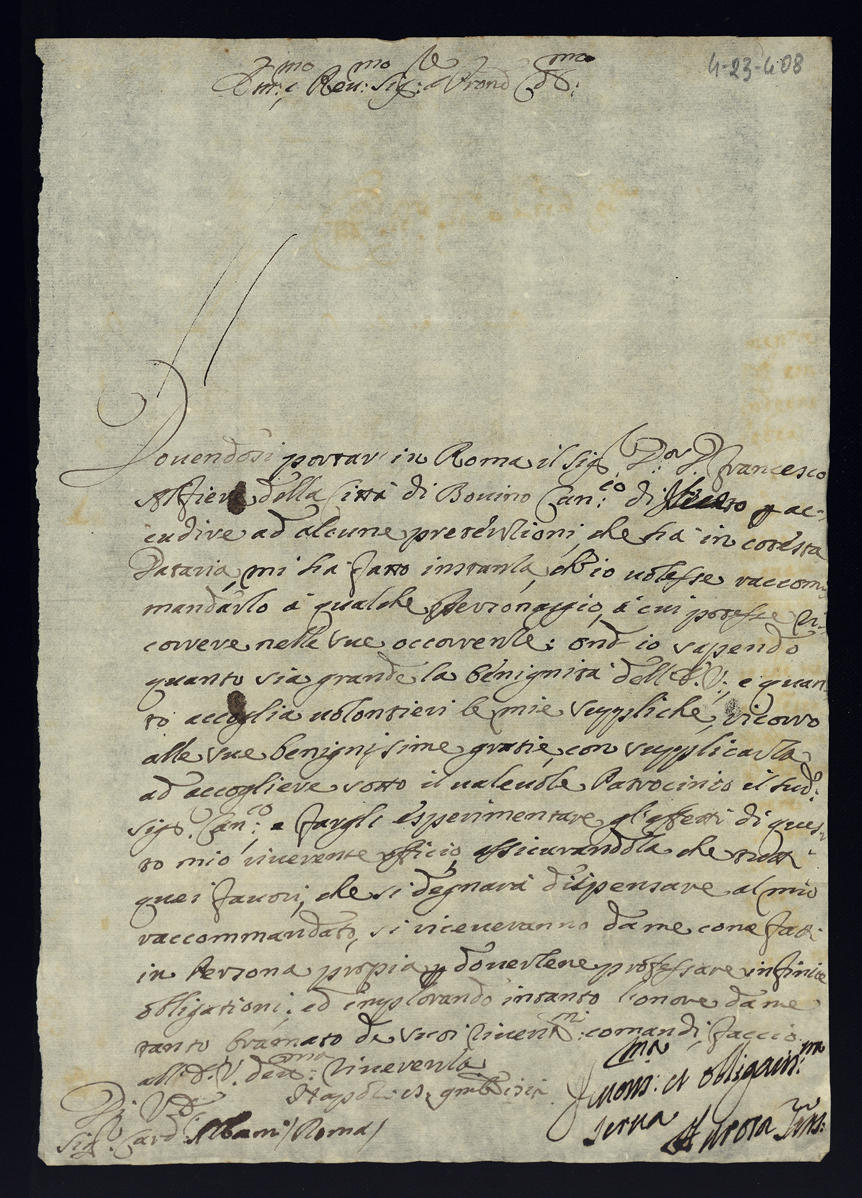 4-23-408
Em:mo e Reu:mo Sig:re e Pron Col:mo
Douendosi portar in Roma il Sig:r D:or D. Francesco
Alfieri della Città di Bouino Can:co di p ac-
cudire ad alcune pretentioni, che hà in cotesta
Dataria, mi hà fatto instanza, ch'io uolesse raccom-
mandarlo à qualche Personaggio, à cui potesse ri-
correre nelle sue occorrenze: ond' io sapendo
quanto sia grande la benignità dell' E. V., e quan-
to accoglia uolontieri le mie suppliche, ricorro
alle sue benignissime gratie, con supplicarla
ad accogliere sotto il ualeuole Patrocinio il sud:o
Sig:r Can:co, e fargli esperimentare gl'effetti di ques-
to mio riuerente officio, assicurandola che tutti
quei fauori, che si degnarà dispensare al mio
raccommandato, si riceueranno da me come fatti
in Persona propia p douerlene professare infinite
obligationi; ed implorando intanto l'onore da me
tanto bramato de suoi riueri:mi comandi, faccio
all' E. V. deu:ma riuerenza
Napoli
Di V. E.
Deuot:ma et obligatis:ma
serua
Aurora
Sig:r Card:l Albani / Roma /